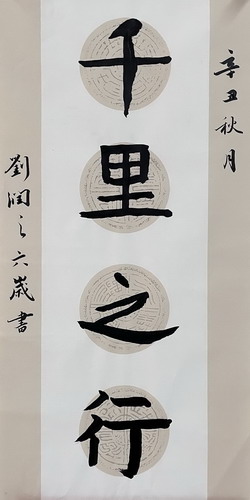 辛丑秋月
千里之行
劉潤之六歲書